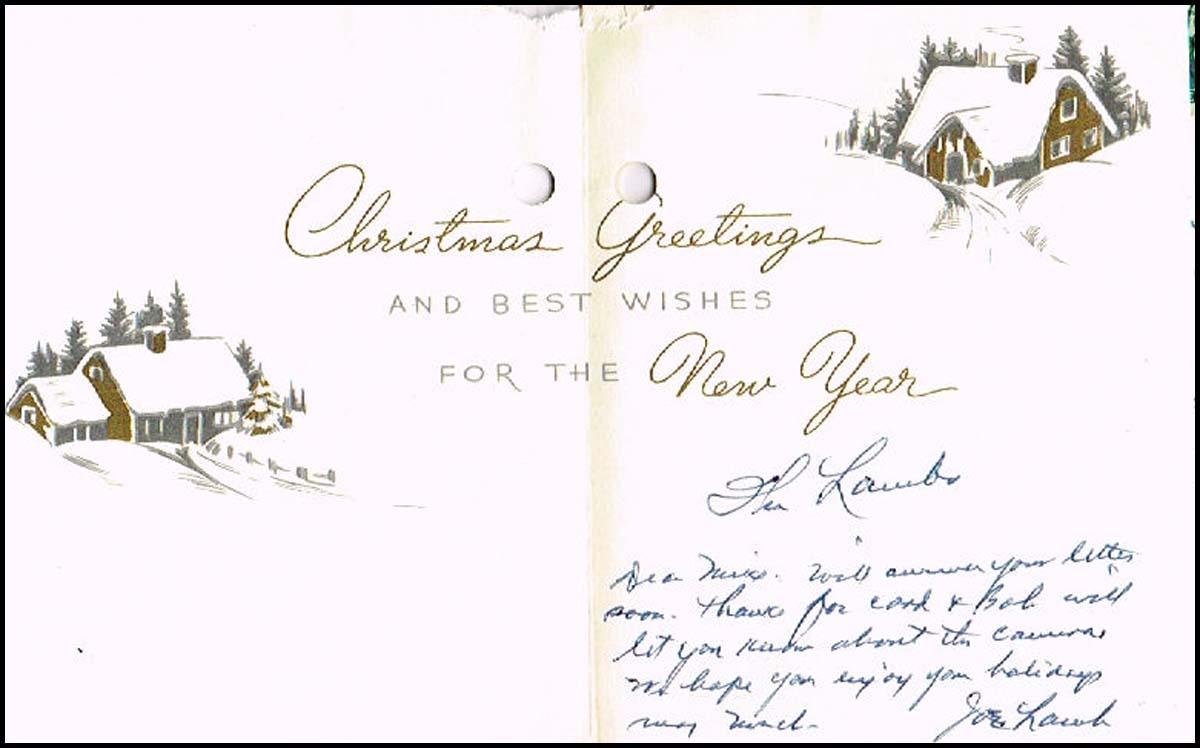 Christmas Greetings
AND BEST WISHES
FOR THE New Year
The Lambs
Dear Mike. Will answer your letter
soon. Thanks for card & Bob will
let you know about the camera
We hope you enjoy your holidays
very much.
Lamb